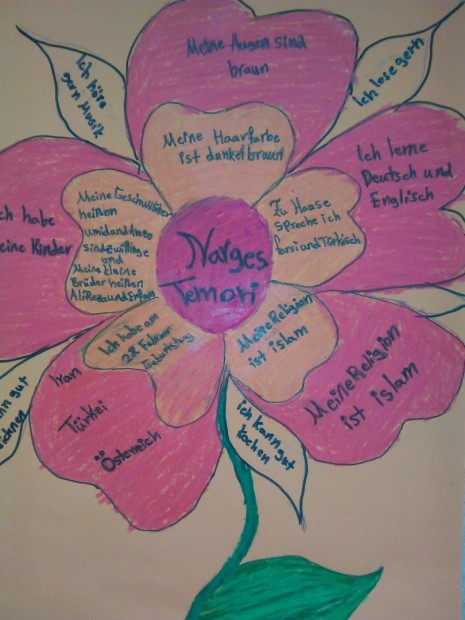 Meine Augen sind
braun
Ich höre
gern Musik
Ich lese gern
Meine Haarfarbe
ist dunkelbraun
Ich lerne
Deutsch und
Englisch
Zu Hause
spreche ich
Farsi und Türkisch
Narges
Temori
Meine Geschwister
heißen
sind zwillinge
und
Meine kleine
Brüder heißen
Ali Reza und
ch habe
eine Kinder
Ich habe am
28 Februar
Geburtstag
Meine Religion
ist islam
Meine Religion
ist islam
Iran
Türkei
Österreich
ich kann gut
kochen
nn gut
ichnen